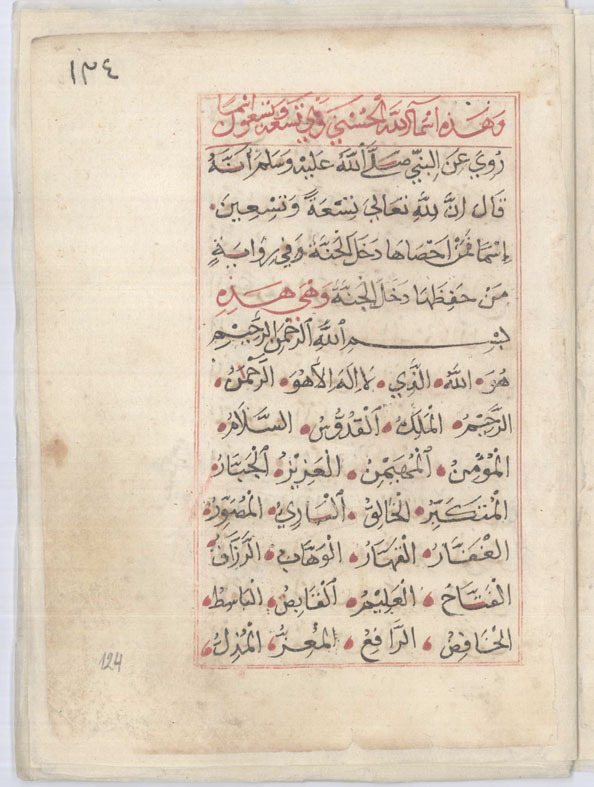 ١٣٤
وهذه اسمآء الله الحسنى وهي تسعة وتسعون اسما
روي عن النبي صلى الله عليه وسلم انه
قال ان لله تعالى تسعة وتسعين
اسما فمن احصاها دخل الجنة وفي رواية
من حفظها دخل الجنة وهي هذه
بسم الله الرحمن الرحيم
هو الله الذي لا اله الا هو الرحمن
الرحيم الملك القدوس السلام
المؤمن المهيمن العزيز الجبار
المتكبر الخالق الباري المصور
الغفار القهار الوهاب الرزاق
الفتاح العليم القابض الباسط
الخافض الرافع المعز المذل
124